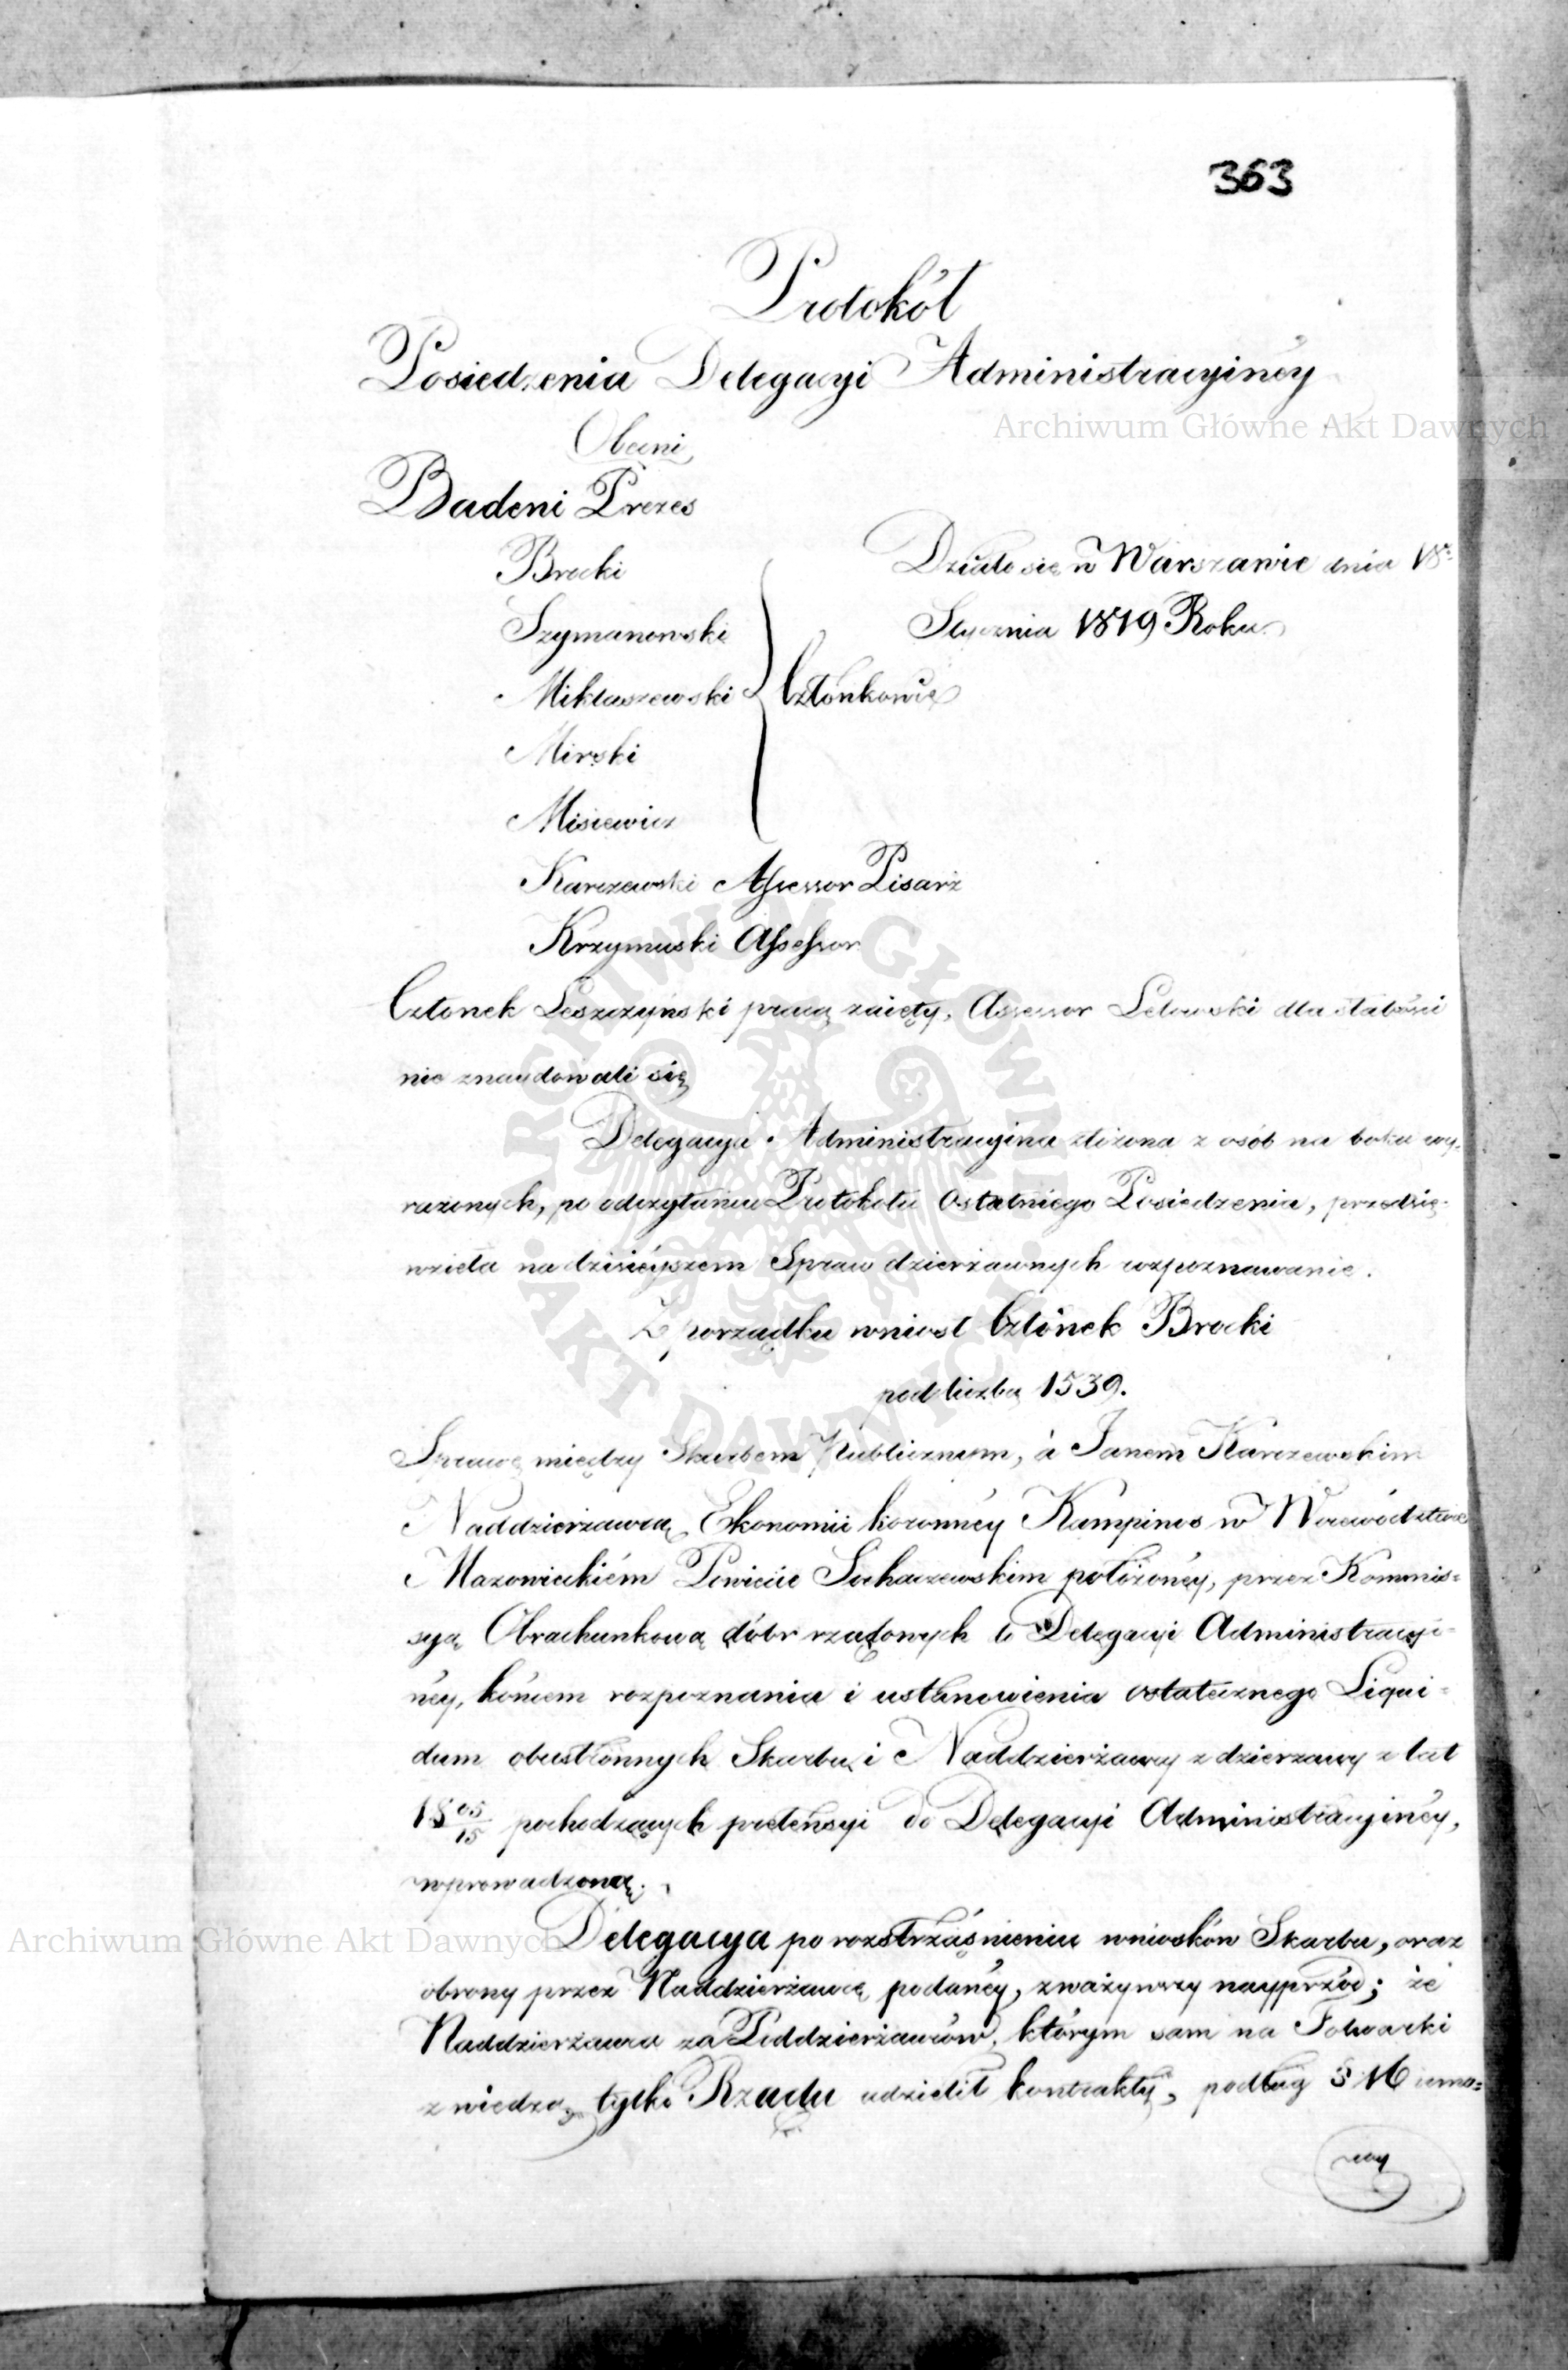 363
Protokół
Posiedzenia Delegacyi Administracyinéy
Archiwum Główne Akt Dawnych
Obecni
Badeni Prezes
Brocki
Działo się w Warszawie dnia 18º
Szymanowski
Stycznia 1819 Roku
Miklaszewski
Członkowie
Mirski
Misiewicz
Karczewski Assessor Pisarz
Krzymuski Assessor
Członek Leszczyński pracą zaięty, Assessor Letowski dla słabości
nie znaydowali się
Delegacya Administracyina złożona z osób na boku wy-
rażonych, po odczytaniu Protokołu Ostatniego Posiedzenia, przedsię-
wzieła na dzisieyszem Spraw dzierżawnych rozpoznawanie.
Z porządku wniosł Człónek Brocki
pod liczbą 1539.
Sprawę między Skarbem Publicznym, à Janem Karczewskim
Naddzierżawcą Ekonomii koronnéy Kampinos w Woiewództwie
Mazowieckiém Powiecie Sochaczewskim położonéy, przez Kommis=
syą Obrachunkową dóbr rządowych do Delegacyi Administracyi=
néy, końcem rozpoznania i ustanowienia ostatecznego Liqui=
dum obustronnych Skarbu i Naddzierżawcy z dzierzawy z lat
18 05/15 pochodzących pretensyi do Delegacyi Administracyinéy,
wprowadzoną.
Archiwum Główne Akt Dawnych
Delegacya po rozstrząśnieniu wniosków Skarbu, oraz
obrony przez Naddzierżawcę podanéy, zważywszy nayprzód; że
Naddzierżawca za Poddzierżawców, którym sam na Folwarki
z wiedzą tylko Rządu udzielił kontrakty, podług § 16 umo=
wy
ARCHIWUM GŁÓWNE • AKT DAWNYCH •